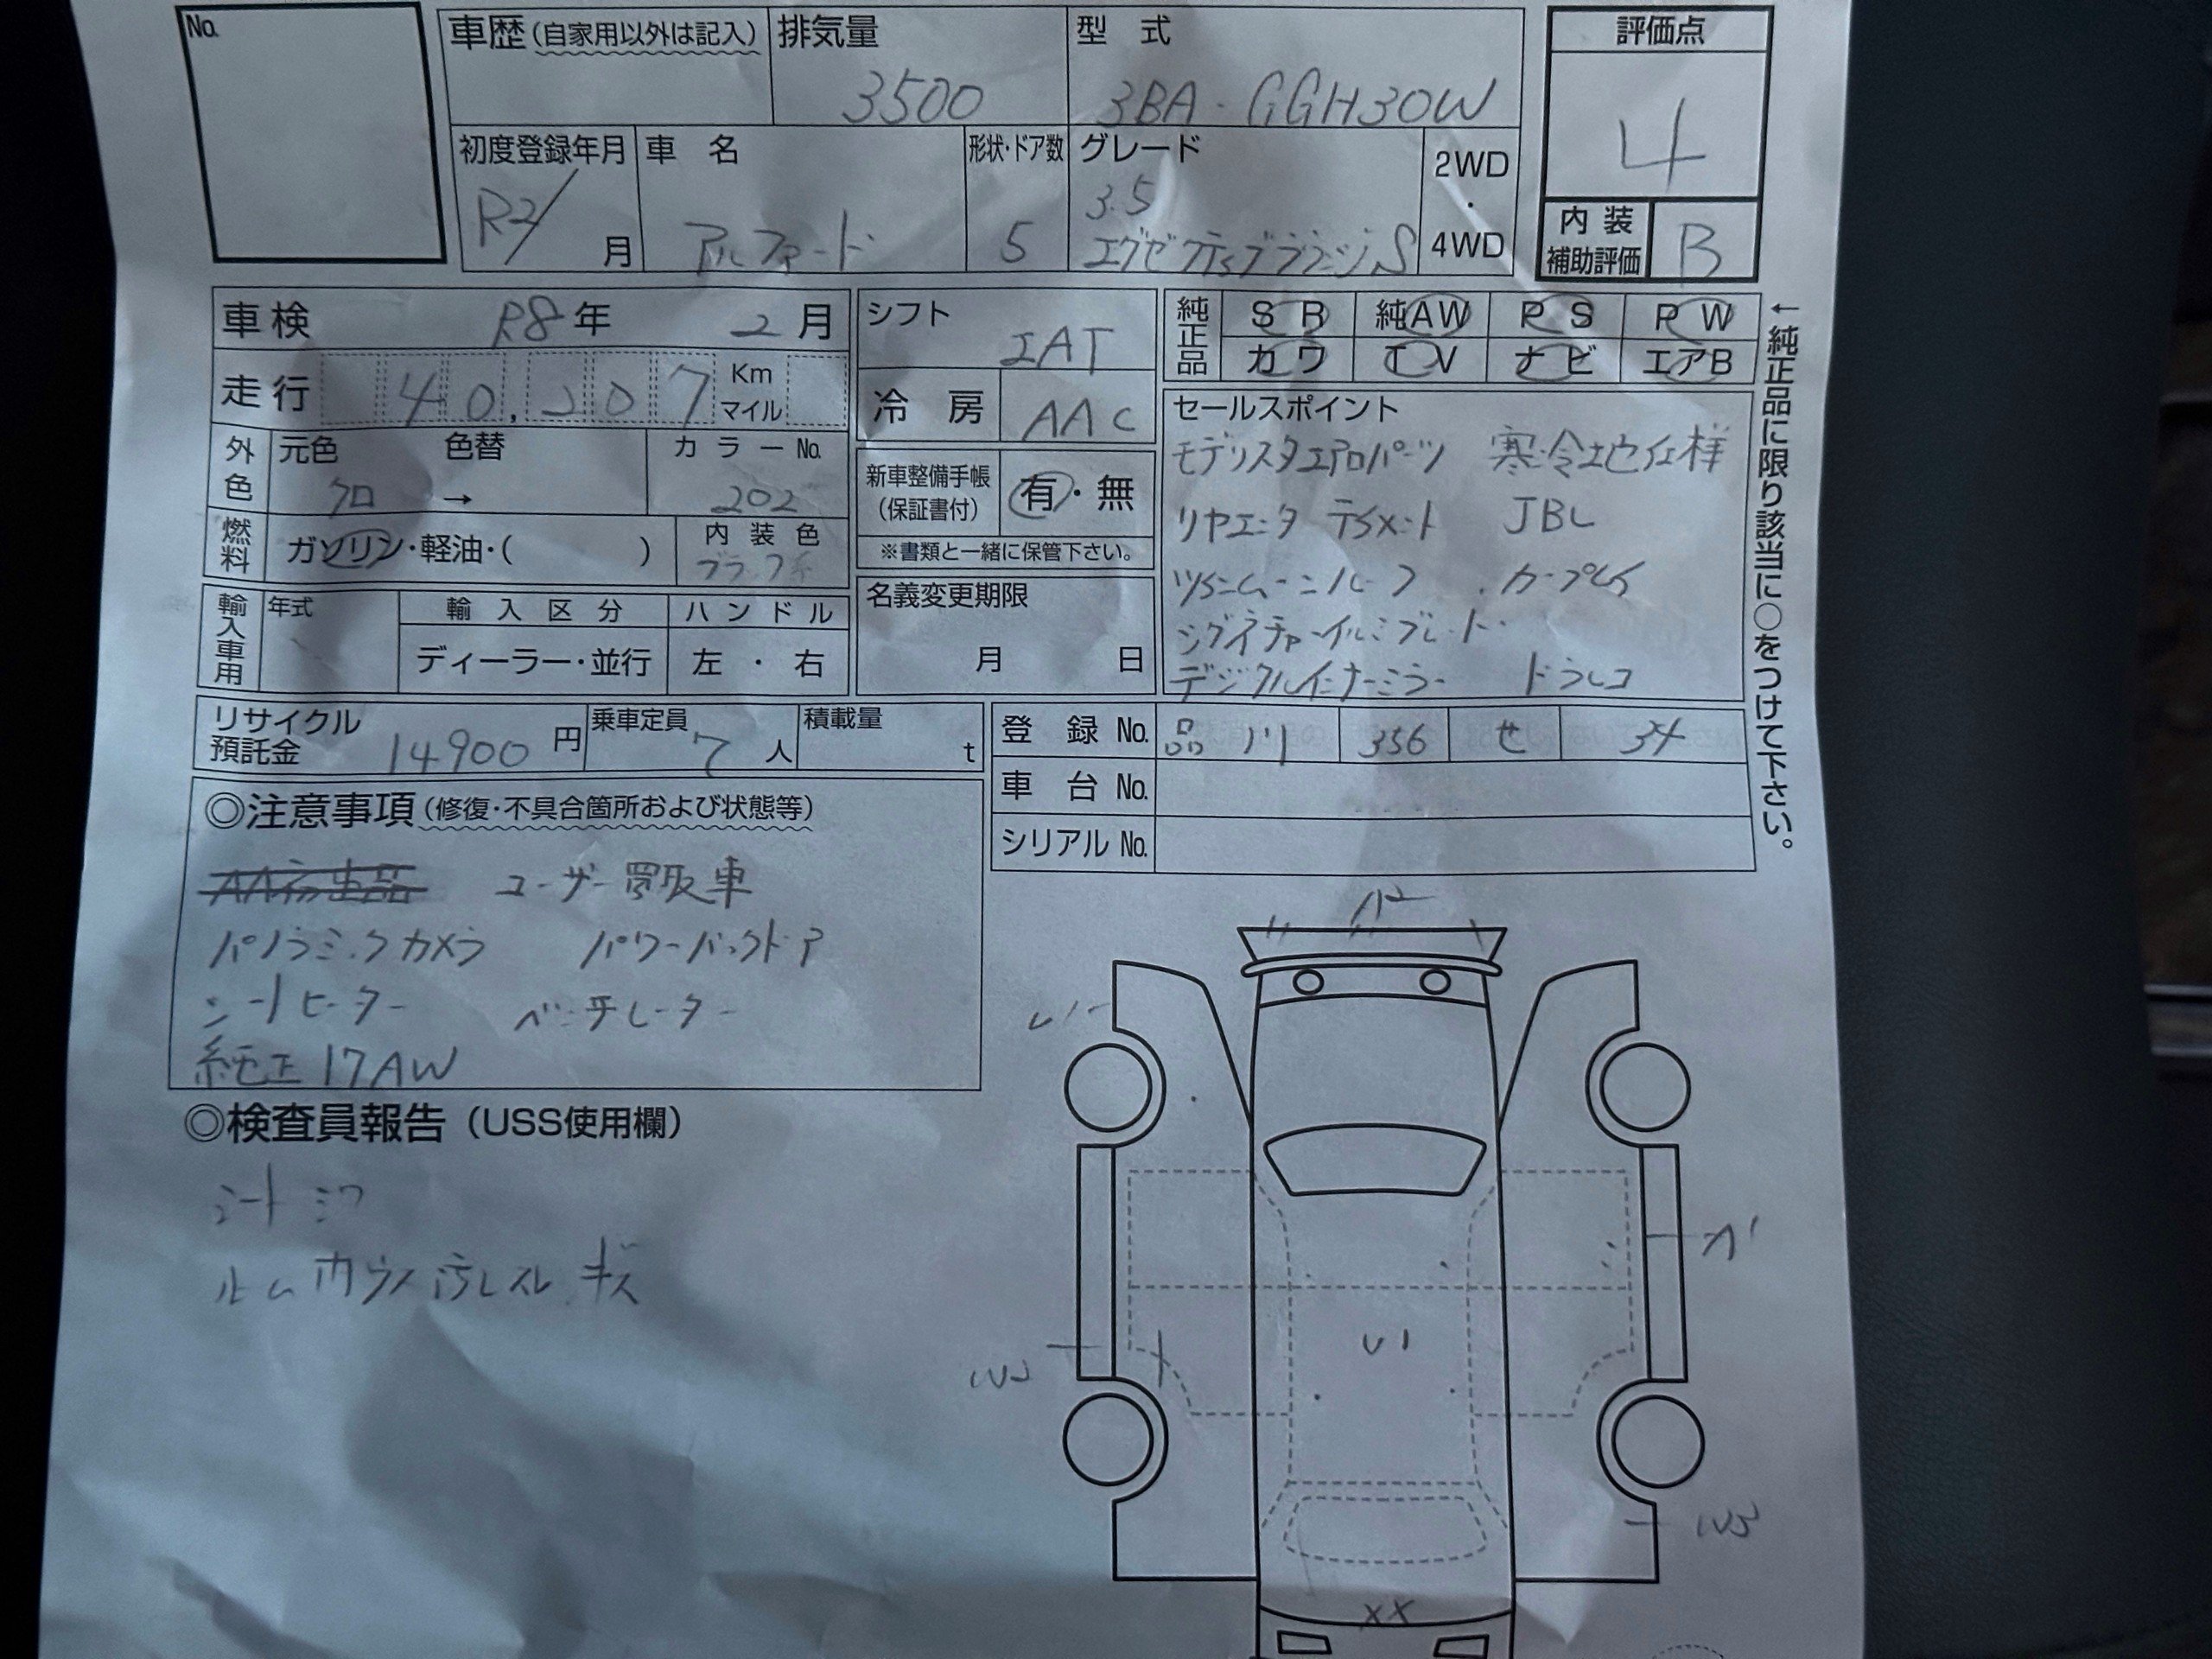 No.
車歴(自家用以外は記入) 排気量 3500 型式 3BA-GGH30W 評価点 4
初度登録年月 R2/ 月 車名 アルファード 形状・ドア数 5 グレード 3.5 エグゼクティブラウンジS 2WD・4WD
内装補助評価 B
車検 R8年 2月
走行 40,207 Km マイル
外色 元色 クロ 色替 → カラーNo. 202
燃料 ガソリン・軽油・( ) 内装色 ブラック系
輸入車用 年式 輸入区分 ディーラー・並行 ハンドル 左・右
シフト IAT
冷房 AAC
新車整備手帳(保証書付) 有・無
※書類と一緒に保管下さい。
名義変更期限 月 日
純正品 SR 純AW PS PW
カワ TV ナビ エアB
←純正品に限り該当に○をつけて下さい。
セールスポイント
モデリスタエアロパーツ 寒冷地仕様
リヤエンタテイメント JBL
ツインムーンルーフ . カープレイ
シグネチャーイルミブレード
デジタルインナーミラー ドラレコ
リサイクル預託金 14900円 乗車定員 7人 積載量 t
登録No. 品川 356 せ 34
車台No.
シリアルNo.
◎注意事項(修復・不具合箇所および状態等)
AA初出品 ユーザー買取車
パノラミックカメラ パワーバックドア
シートヒーター ベンチレーター
純正17AW
◎検査員報告(USS使用欄)
シートシワ
ルーム 汚レ スレ キズ
A2
U1
A1
W2
U1
W3
XX